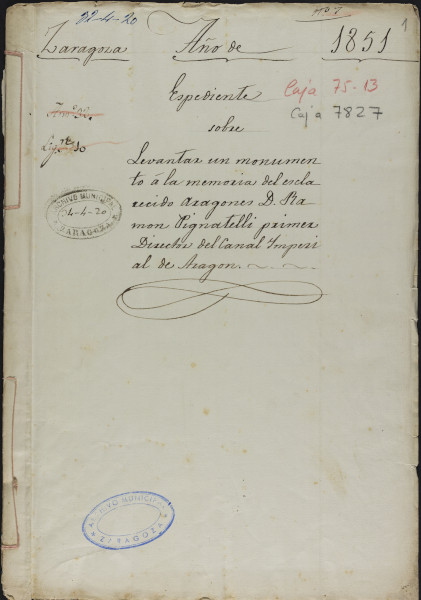 22-4-20
1
Zaragoza Año de 1851
Expediente
Caja 75-13
sobre
Caja 7827
Levantar un monumen
to á la memoria del escla
recido Aragones D. Ra
mon Pignatelli primer
Director del Canal Imperi
al de Aragon.
ARCHIVO MUNICIPAL
24-4-20
ZARAGOZA
ARCHIVO MUNICIPAL
ZARAGOZA